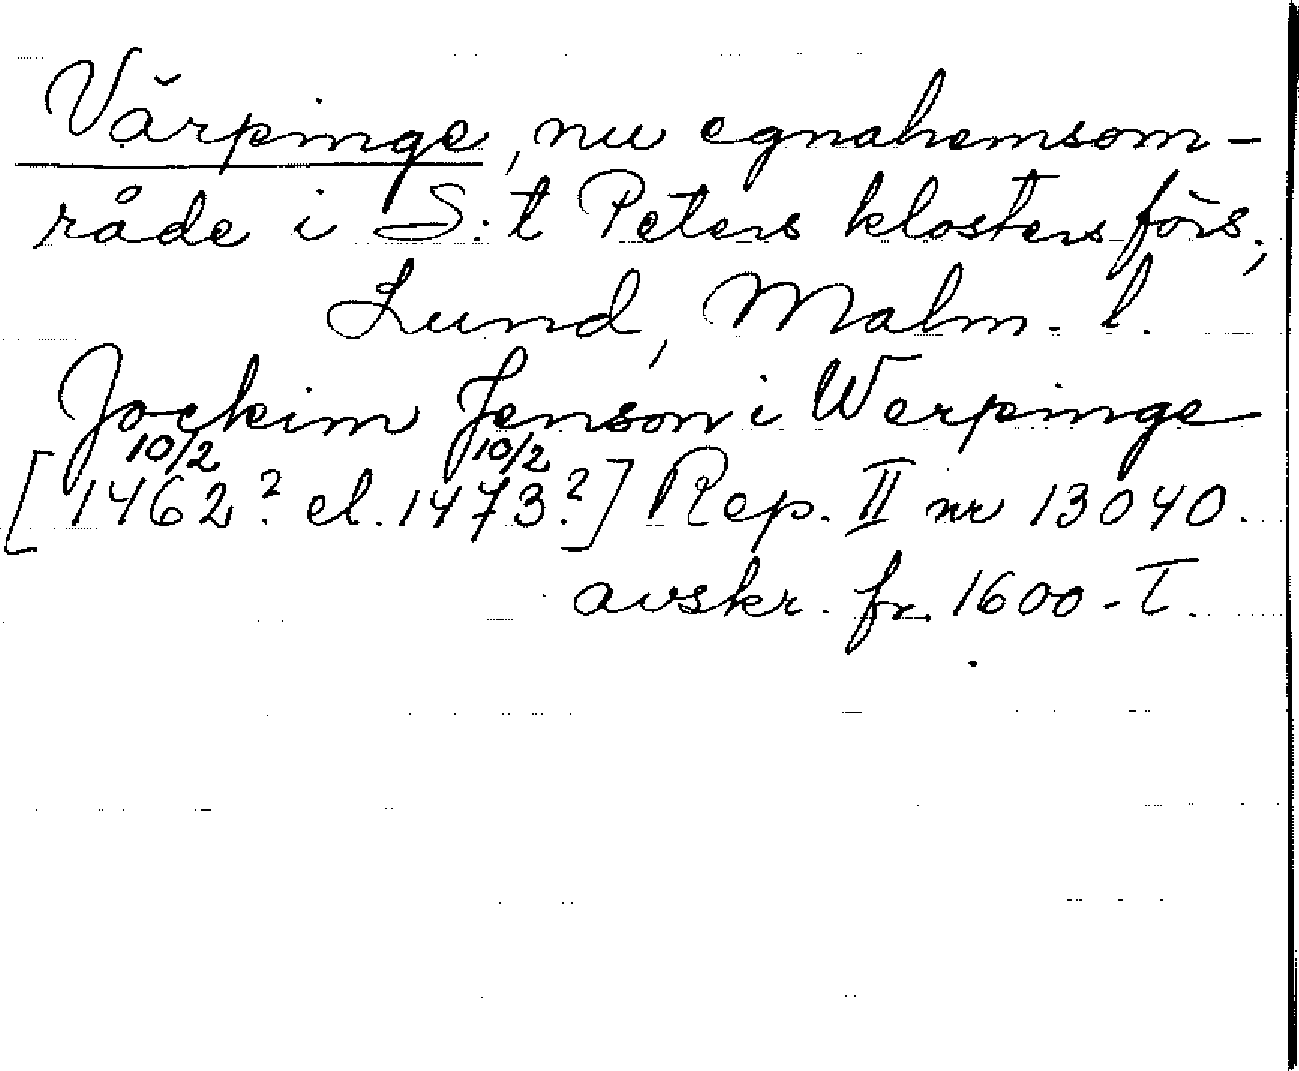 Värpinge, nu egnahemsom-
råde i S:t Peters klosters förs.,
Lund, Malm. l.
Jockim Jenson i Werpinge
10/2 10/2
[1462? el. 1473?] Rep. II nr 13040.
avskr. fr. 1600-T.